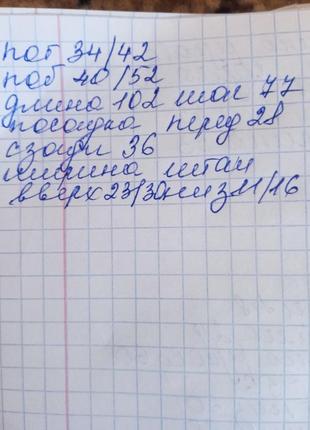 пот 34/42
поб 40/52
длина 102 шаг 77
посадка перед 28
сзади 36
ширина штан
вверх 23/30 низ 11/16